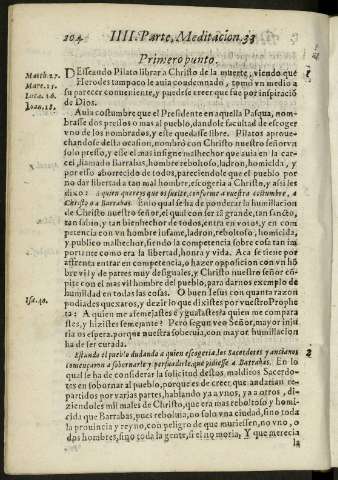 204 IIII. Parte, Meditacion. 33
Primero punto.
Matth. 27.
Marc. 15.
Lucæ. 26.
Ioan. 18.
DEsseando Pilato librar a Christo de la muerte, viendo que
Herodes tampoco le auia condenado, tomò vn medio a
su parecer conueniente, y puedese creer que fue por inspiraciõ
de Dios.
Auia costumbre que el Presidente en aquella Pasqua, nom-
brasse dos presos o mas al pueblo, dandole facultad de escoger
vno de los nombrados, y este quedasse libre. Pilatos aproue-
chandose desta ocasion, nombrò con Christo nuestro señor vn
solo presso, y esse el mas insigne malhechor que auia en la car-
cel, llamado Barrabas, hombre reboltoso, ladron, homicida, y
por esso aborrecido de todos, pareciendole que el pueblo por
no dar libertad a tan mal hombre, escogeria a Christo, y assi les
dixo: a quien quereys que os suelte, conforme a vuestra costumbre, a
Christo, o a Barrabas. En lo qual se ha de ponderar la humillacion
de Christo nuestro señor, el qual con ser tã grande, tan santo,
tan sabio, y tan bienhechor de todos, entra en votos, y en com
petencia con vn hombre infame, ladron, reboltoso, homicida,
y publico malhechor, siendo la competencia sobre cosa tan im
portante como era la libertad, honra y vida. Aca se tiene por
affrenta entrar en competencia, o hazer opposicion con vn hõ
bre vil y de partes muy desiguales, y Christo nuestro señor cõ
pite con el mas vil hombre del pueblo, para darnos exemplo de
humildad en todas las cosas. O buen Iesus con quanta razon
Isa. 40.
podiades quexaros, y dezir lo que dixistes por vuestro Prophe
ta: A quien me assemejastes e igualastes? a quien me compara
stes, y hizistes semejante? Pero segun veo Señor, mayor inju
ria os espera, porque nuestra soberuia, con mayor humillacion
ha de ser curada.
2
Estando el pueblo dudando a quien escogeria, los Sacerdotes y ancianos
començaron a sobornarle y persuadirle, que pidiesse a Barrabas. En lo
qual se ha de considerar la solicitud destos maldictos Sacerdo-
tes en sobornar al pueblo, porque es de creer, que andarian re-
partidos por varias partes, hablando ya a vnos, ya a otros, di-
ziendoles mil males de Christo, que era mas reboltoso y homi-
cida que Barrabas, pues reboluia, no solo vna ciudad, sino toda
la prouincia y reyno, con peligro de que muriessen, no vno, o
dos hombres, sino toda la gente, si el no moria. Y que merecia
la